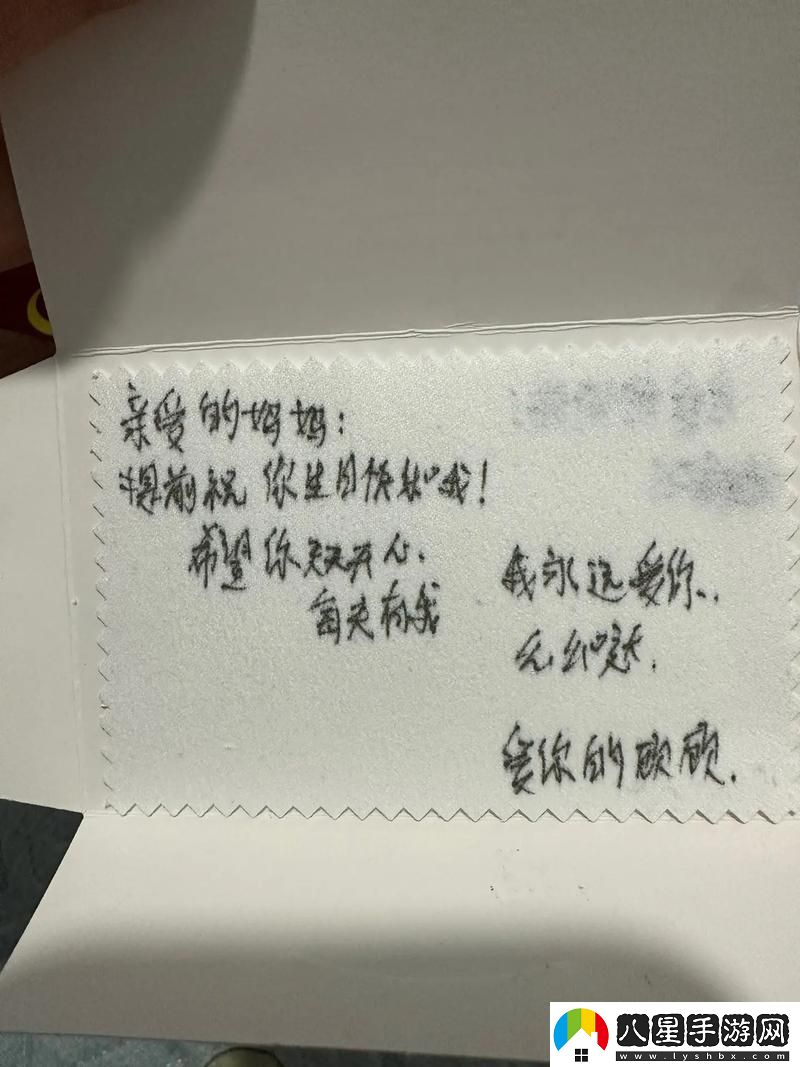 亲爱的妈妈：
提前祝你生日快乐哦！
希望你天天开心、
每天有我
我永远爱你、
无纠哒.
爱你的顾顾.
八星手游网
www.lyshbx.com